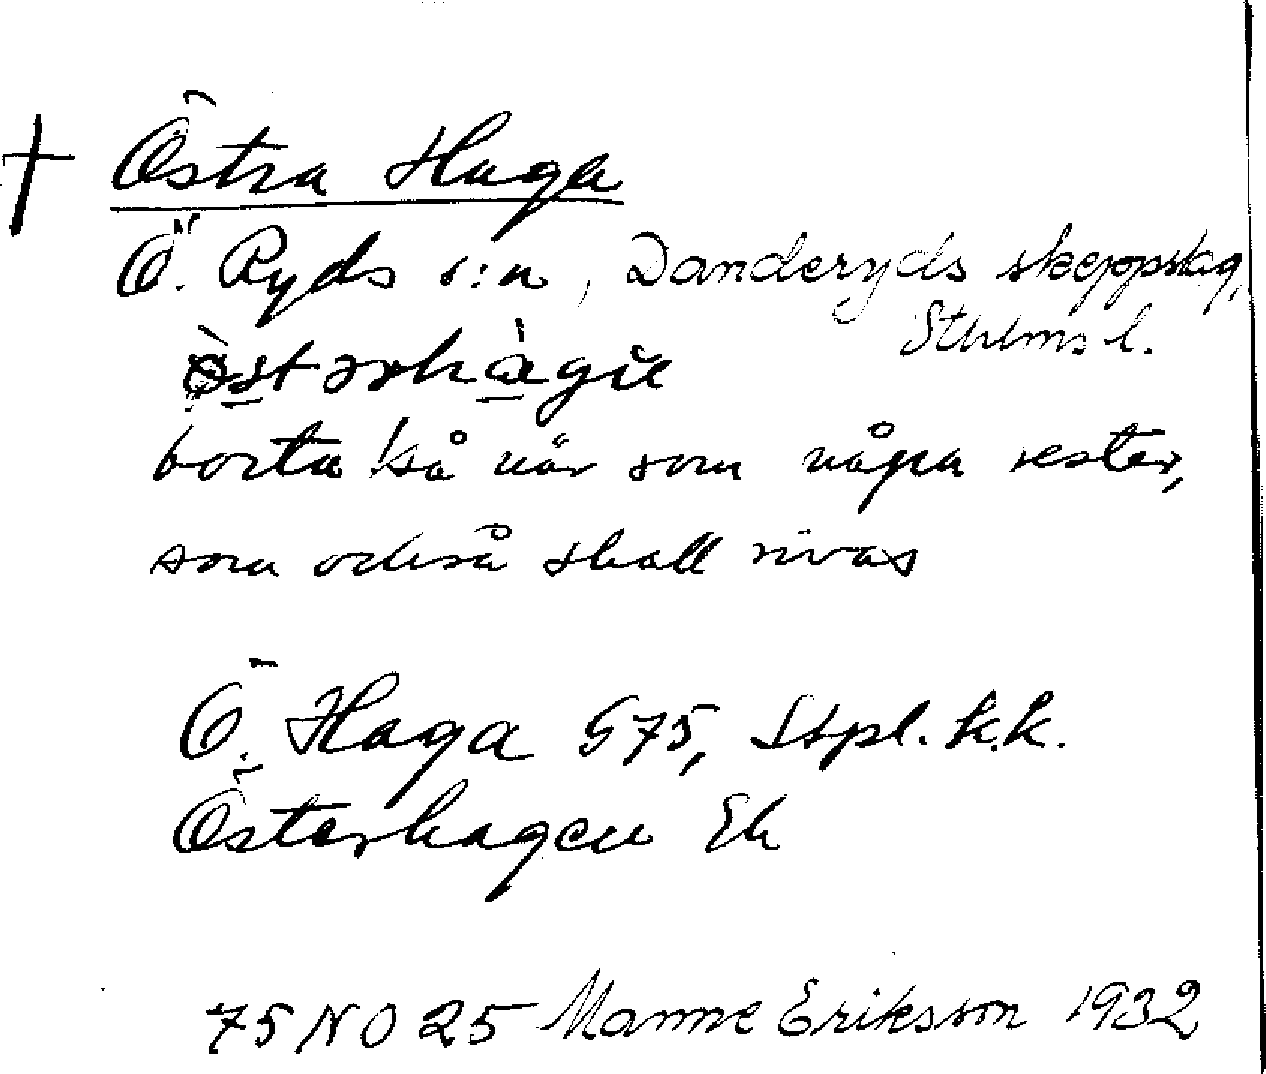 † Östra Haga
Ö. Ryds s:n, Danderyds skeppslag,
Sthlms l.
borta så när som några rester,
som också skall rivas
Ö. Haga G75, Stpl. k.k.
Österhagen Ek
75 NO 25 Manne Eriksson 1932